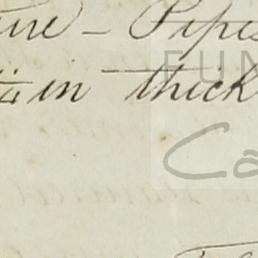 ure – Pipes
¼ in thick
FUN
Ca